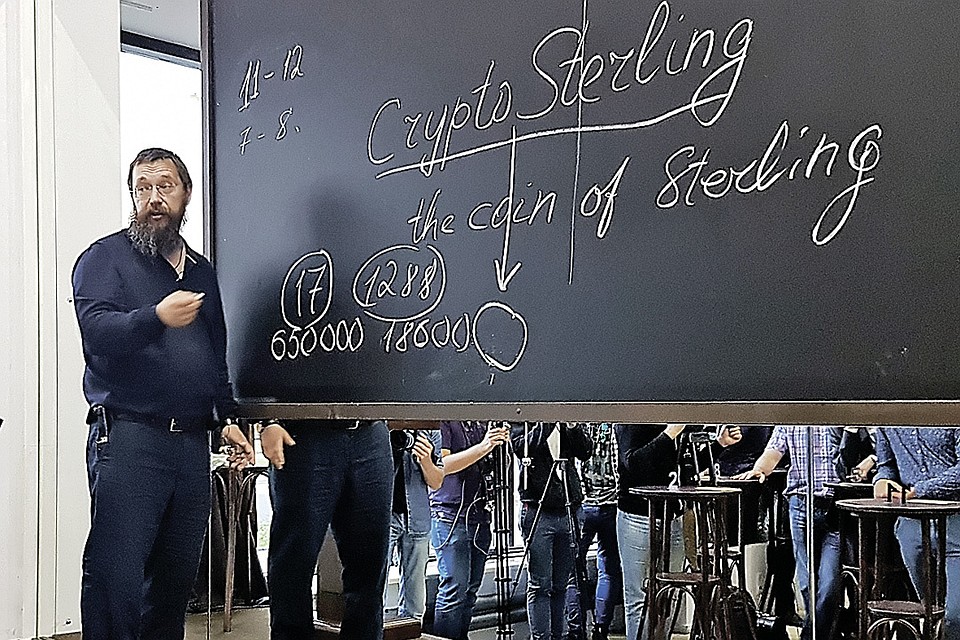 11-12
7-8.
CryptoSterling
the coin of Sterling
17 1288
650000 18000